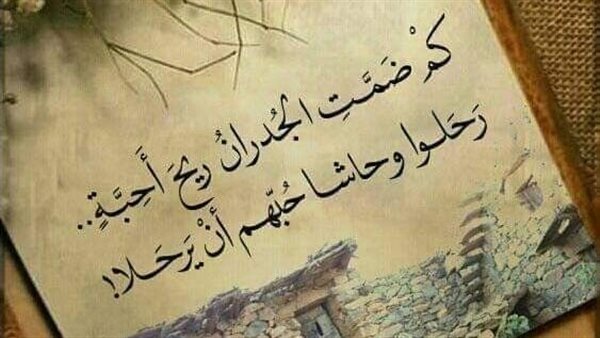 كمْ ضَمَّتِ الجُدرانُ ريحَ أَحِبَّةٍ..
رَحَلوا وحاشا حُبّهم أنْ يَرحَلا!